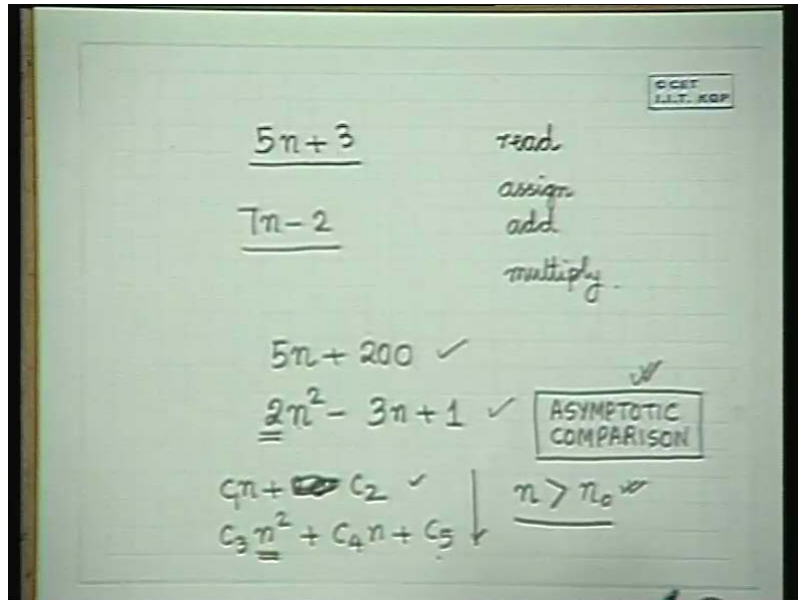 © CET
I.I.T. KGP
5n + 3
read
assign
7n - 2
add
multiply.
5n + 200 ✓
2n² - 3n + 1 ✓
ASYMPTOTIC
COMPARISON
c₁n + c₂ ✓
n > n₀
c₃n² + c₄n + c₅